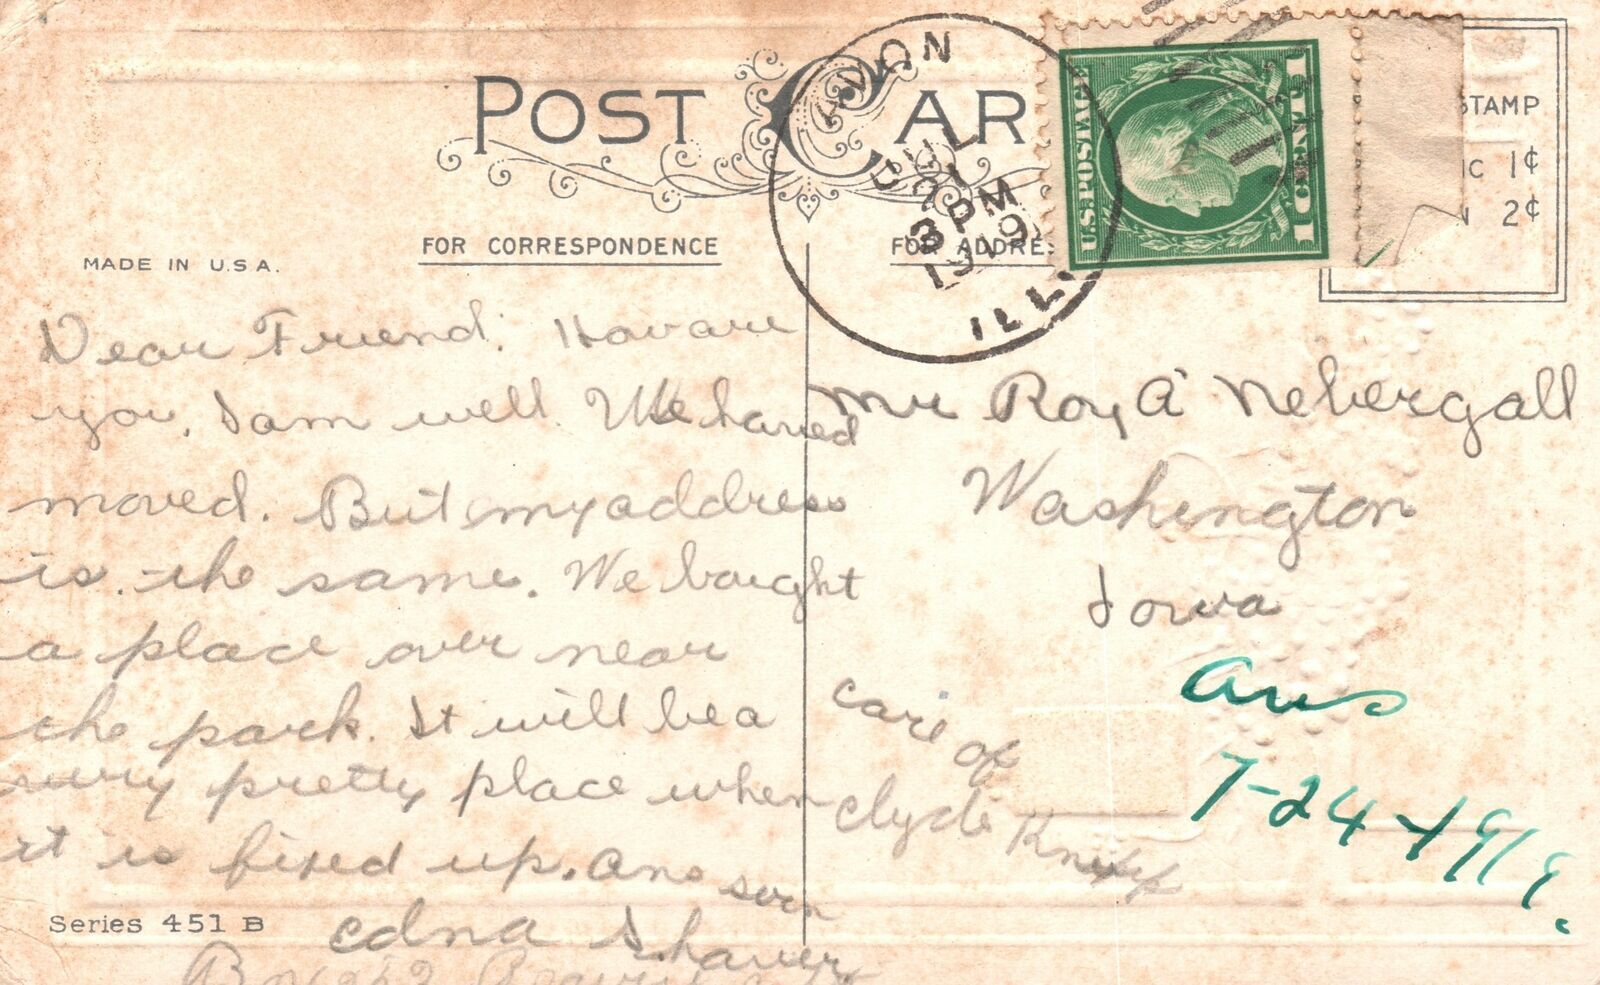 POST CAR
AVON
JUL
21
3 PM
1919
ILL.
U.S. POSTAGE
1 CENT 1
STAMP
IC 1¢
N 2¢
MADE IN U.S.A.
FOR CORRESPONDENCE
FOR ADDRE
Dear Friend. How are
you, I am well. We haved
moved. But my address
is the same. We bought
a place over near
the park. It will be a
very pretty place when
it is fixed up. Ans soon
Edna Shaver
Series 451 B
Mr Roy A Nebergall
Washington
Iowa
care of
Clyde
Ans
7-24-1919.